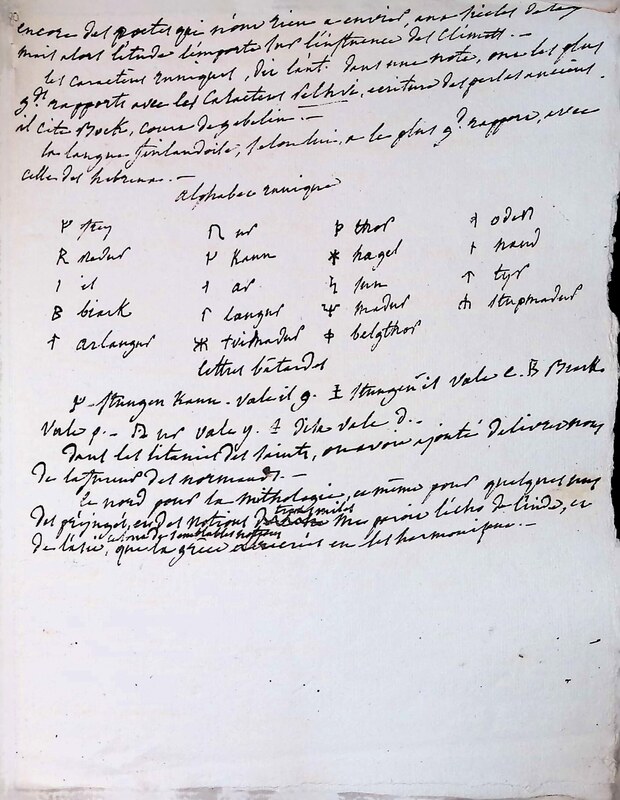 encore des poetes qui n'ont rien a envier, aux siecles
mais alors l'etude l'emporte sur l'influence des climats. -
les caracteres runiques, dit l'aut. dans une note, ont les plus
gds rapports avec les caracteres, ecriture des perses anciens.
il cite Bock, cour de gebelin. -
la langue finlandoise, selon lui, a le plus gd rapport, avec
celle des hebreux. -
alphabet runique
ᚠ fey ᚢ ur ᚦ thor oder
ᚱ redur ᚴ Kaun ᚼ hagel naud
ᛁ il ar sun ᛏ tyr
ᛒ biark ᛚ laugur ᛘ madur stupmadur
arlaugur tvimadur belgthor
lettres bâtardes
stungen Kaun - vale il g. stungen is vale e. B Biark
vale p. - ur vale y. vale d. -
dans les litanies des saints, on avoit ajouté delivrez nous
de la fureur des normands. -
le nord pour la mithologie, et même pour quelques uns
des préjugés, et des notions transmises me paroit l'écho de l'inde, et
de l'asie, comme de semblables notions
que la grèce en les harmonique. -